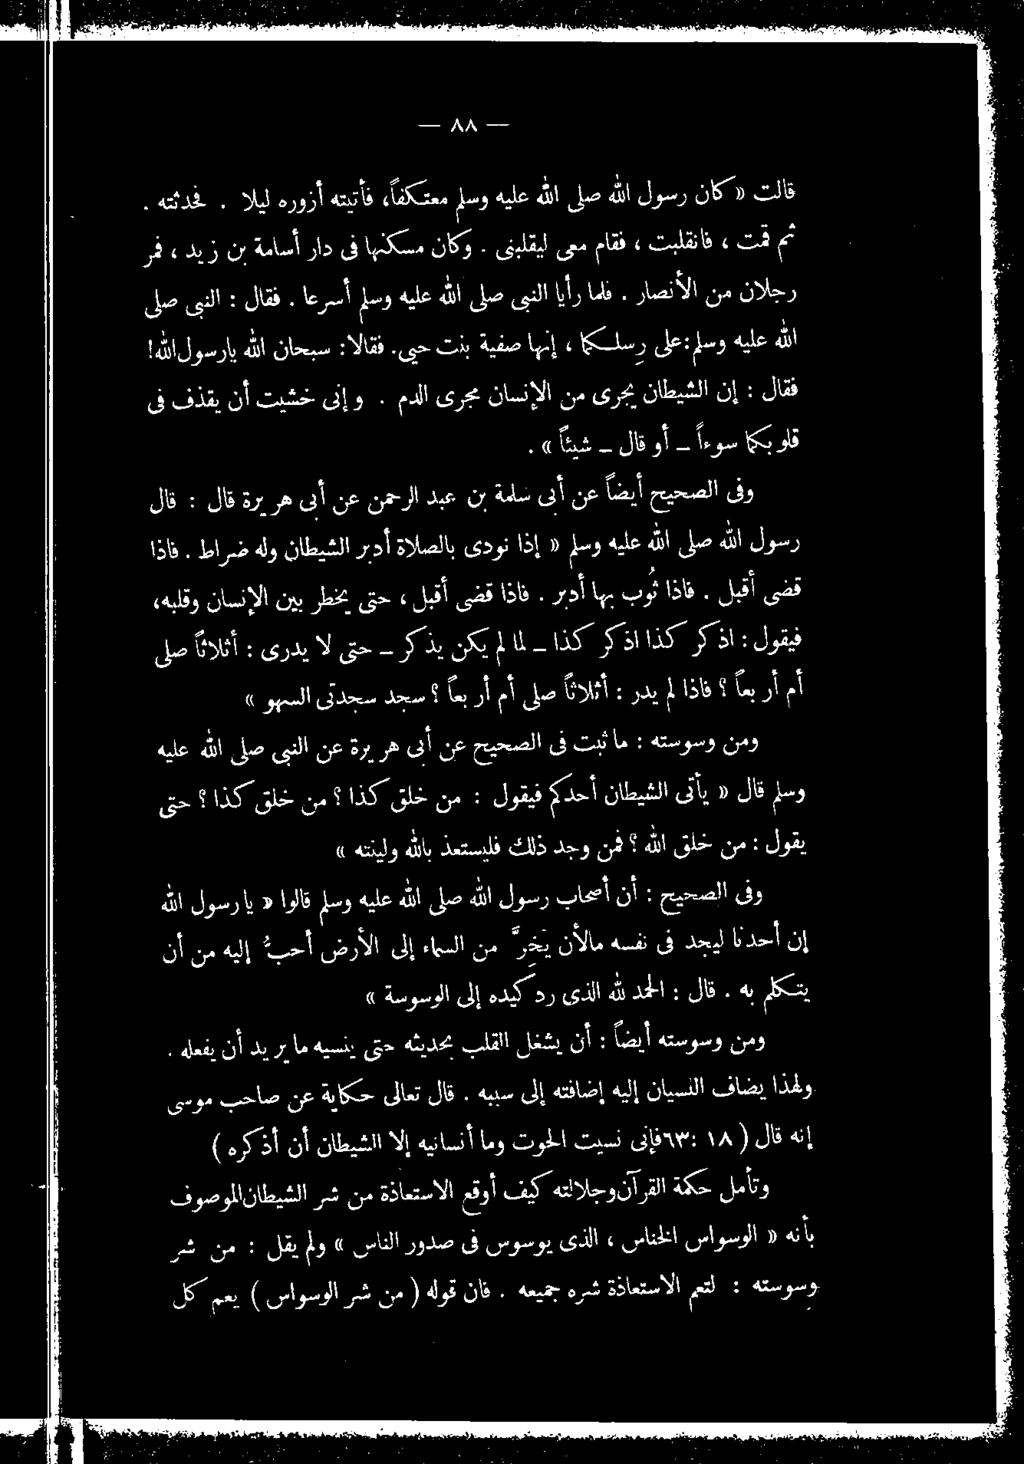 — ٨٨ —
قالت « كان رسول الله صلى الله عليه وسلم معتكفاً، فأتيته أزوره ليلا . فحدثته .
ثم قمت ، فانقلبت ، فقام معى ليقلبنى . وكان مسكنها فى دار أسامة بن زيد ، فمر
رجلان من الأنصار . فلما رأيا النبى صلى الله عليه وسلم أسرعا . فقال : النبى صلى
الله عليه وسلم:على رِسلكما ، إنها صفية بنت حيى .فقالا: سبحان الله يارسول الله!
فقال : إن الشيطان يجرى من الإنسان مجرى الدم . وإنى خشيت أن يقذف فى
قلوبكما سوءاً ــ أو قال ــ شيئاً » .
وفى الصحيح أيضاً عن أبى سلمة بن عبد الرحمن عن أبى هريرة قال : قال
رسول الله صلى الله عليه وسلم « إذا نودى بالصلاة أدبر الشيطان وله ضراط . فاذا
قضى أقبل . فاذا ثُوب بها أدبر . فاذا قضى أقبل ، حتى يخطر بين الإنسان وقلبه،
فيقول : اذكر كذا اذكر كذا ــ لما لم يكن يذكر ــ حتى لا يدرى : أثلاثاً صلى
أم أربعاً ؟ فاذا لم يدر : أثلاثاً صلى أم أربعاً ؟ سجد سجدتى السهو »
ومن وسوسته : ما ثبت فى الصحيح عن أبى هريرة عن النبى صلى الله عليه
وسلم قال « يأتى الشيطان أحدكم فيقول : من خلق كذا ؟ من خلق كذا ؟ حتى
يقول : من خلق الله ؟ فمن وجد ذلك فليستعذ بالله ولينته »
وفى الصحيح : أن أصحاب رسول الله صلى الله عليه وسلم قالوا « يارسول الله
إن أحدنا ليجد فى نفسه مالأن يَخِرَّ من السماء إلى الأرض أحبُّ إليه من أن
يتكلم به . قال : الحمد لله الذى رد كيده إلى الوسوسة »
ومن وسوسته أيضاً : أن يشغل القلب بحديثه حتى ينسيه ما يريد أن يفعله .
ولهذا يضاف النسيان إليه إضافته إلى سببه . قال تعالى حكاية عن صاحب موسى
إنه قال ( ١٨ :٦٣فإنى نسيت الحوت وما أنسانيه إلا الشيطان أن أذكره )
وتأمل حكمة القرآن وجلالته كيف أوقع الاستعاذة من شر الشيطان الموصوف
بأنه « الوسواس الخناس ، الذى يوسوس فى صدور الناس » ولم يقل : من شر
وسوسته : لتعم الاستعاذة شره جميعه . فان قوله ( من شر الوسواس ) يعم كل